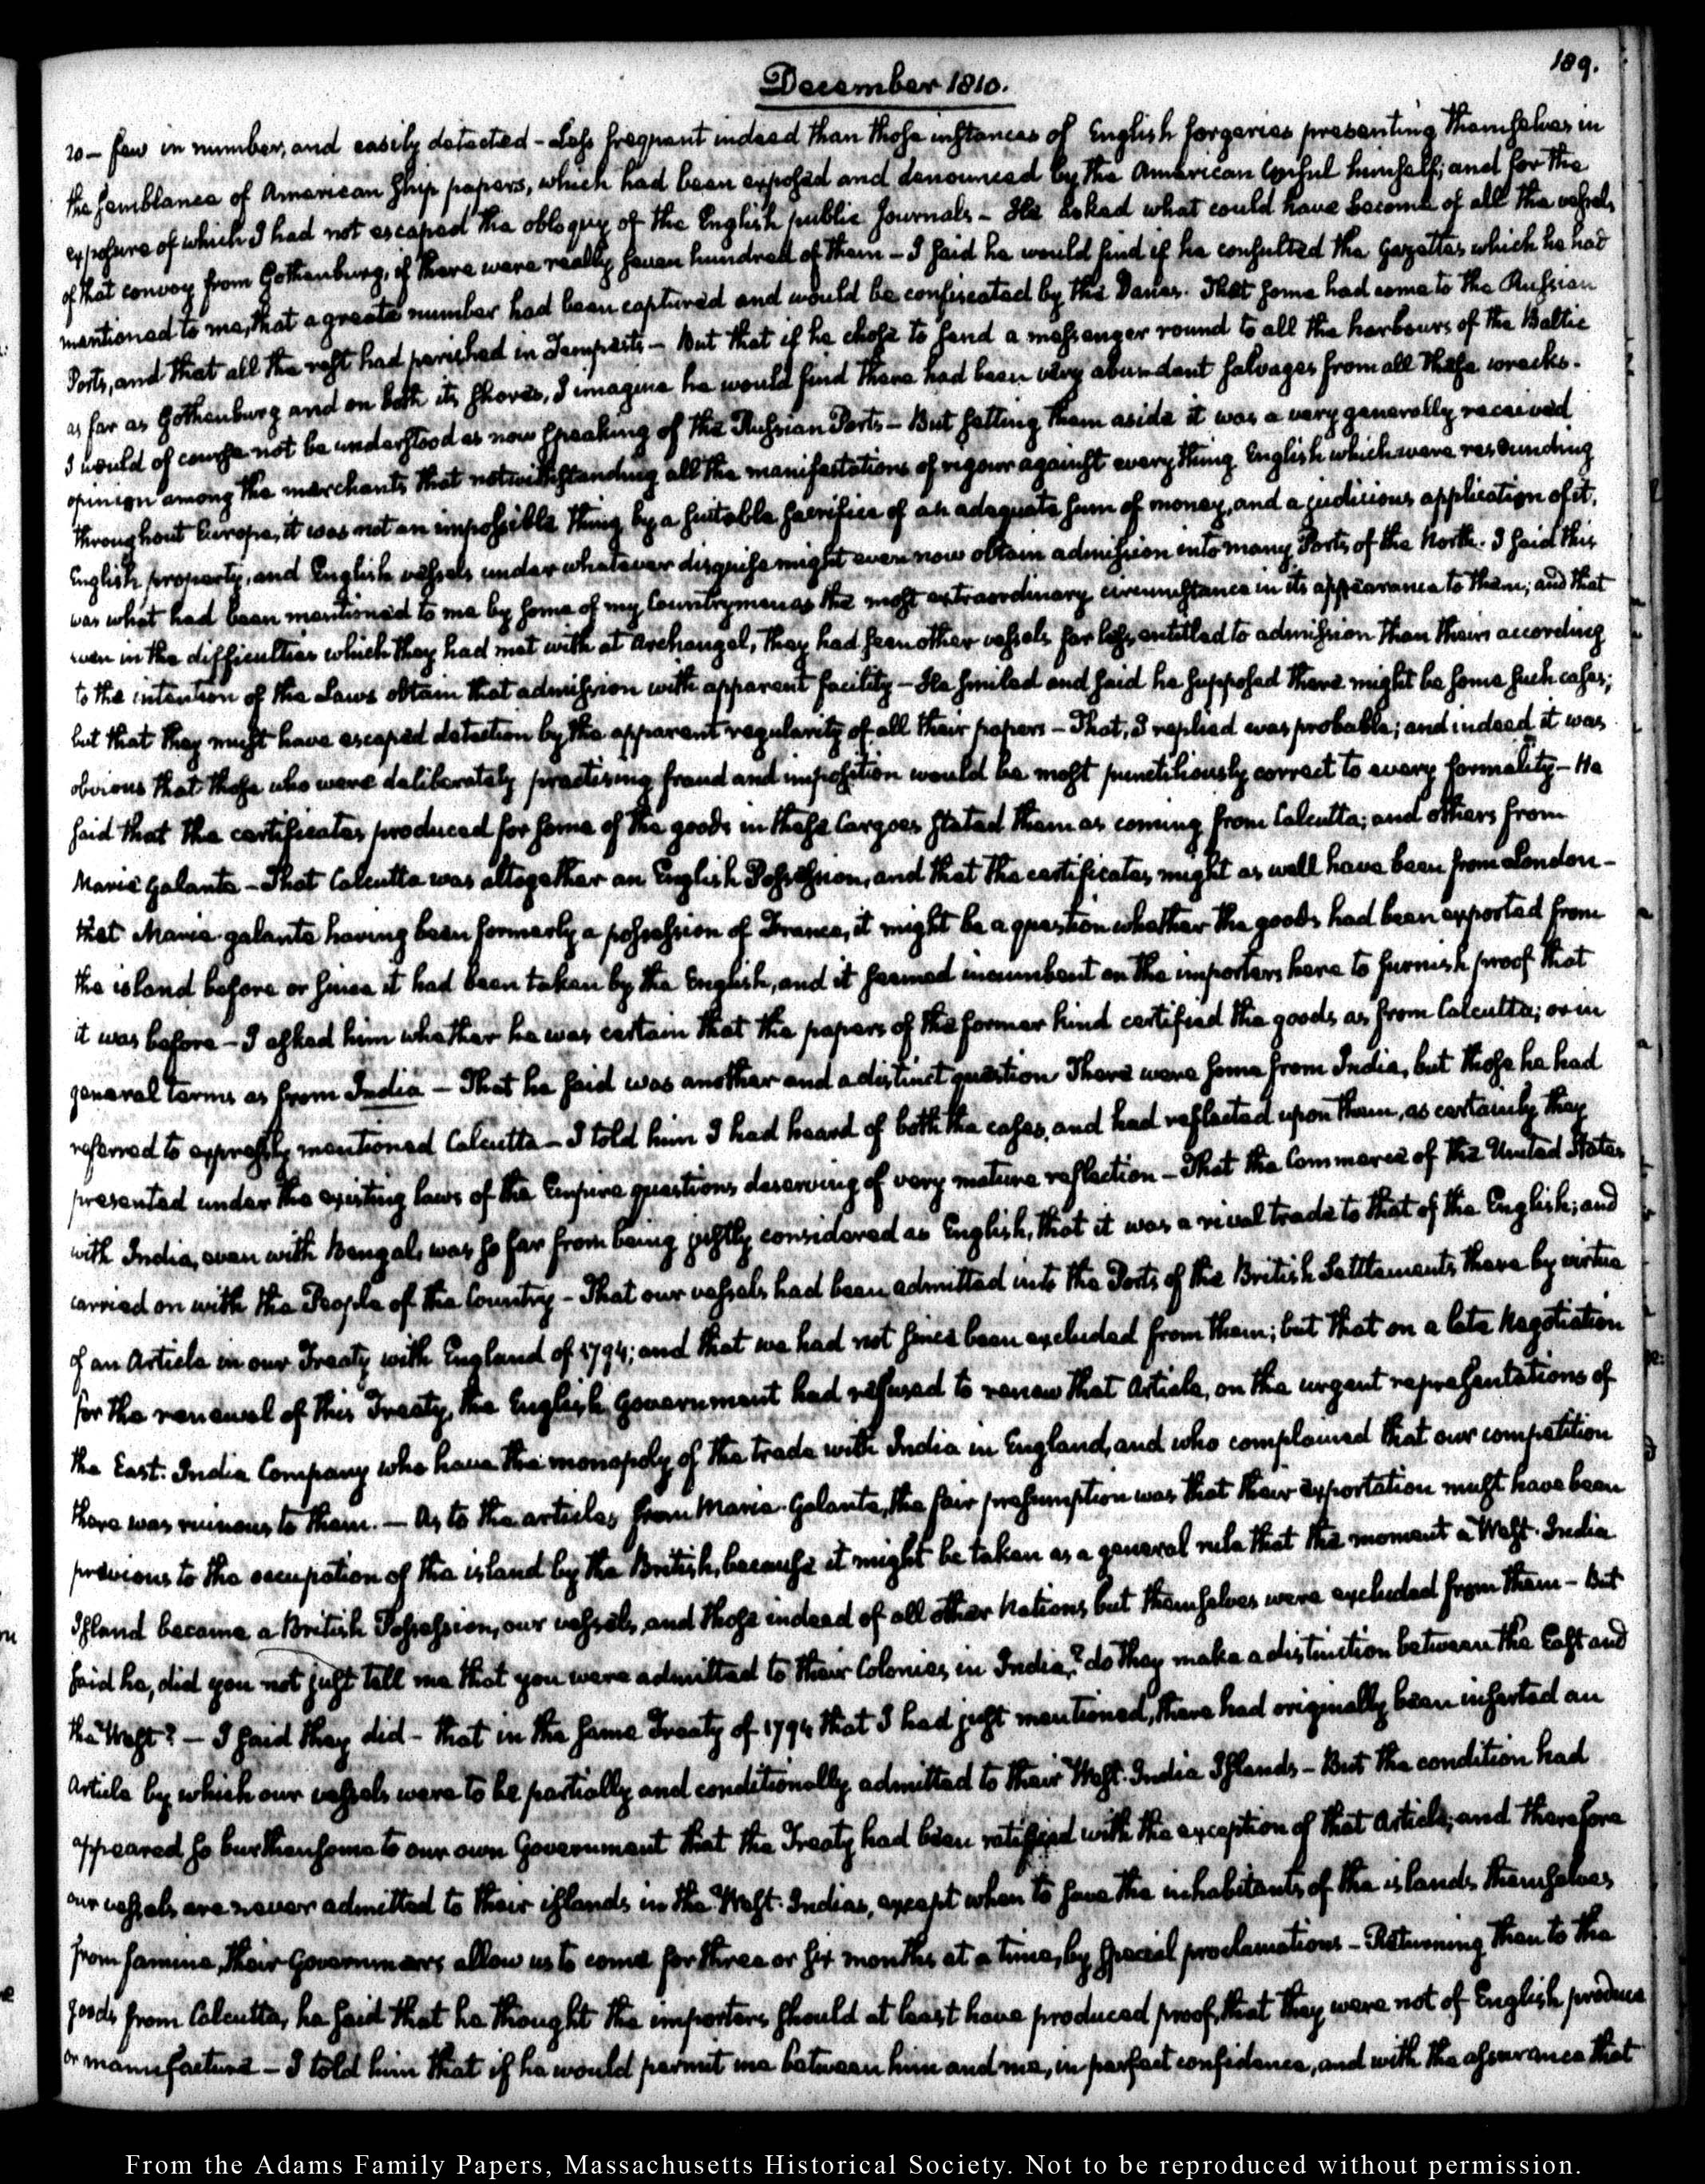 189.
December 1810.
20 — few in number, and easily detected - Less frequent indeed than those instances of English forgeries presenting themselves in
the semblance of American Ship papers, which had been exposed and denounced by the American Consul himself; and for the
exposure of which I had not escaped the obloquy of the English public Journals - He asked what could have become of all the vessels
of that convoy from Gothenburg, if there were really seven hundred of them - I said he would find if he consulted the Gazettes which he had
mentioned to me, that a greate number had been captured and would be confiscated by the Danes. That some had come to the Russian
Ports, and that all the rest had perished in Tempests - But that if he chose to send a messenger round to all the harbours of the Baltic
as far as Gothenburg and on both its shores, I imagine he would find there had been very abundant salvages from all these wrecks.
I would of course not be understood as now speaking of the Russian Ports - But setting them aside it was a very generally received
opinion among the merchants that notwithstanding all the manifestations of rigour against every thing English which were resounding
throughout Europe, it was not an impossible thing by a suitable sacrifice of an adequate sum of money, and a judicious application of it,
English property, and English vessels under whatever disguise might even now obtain admission into many Ports of the North. I said this
was what had been mentioned to me by some of my Countrymen as the most extraordinary circumstance in its appearance to them; and that
even in the difficulties which they had met with at Archangel, they had seen other vessels far less entitled to admission than theirs according
to the intention of the Laws obtain that admission with apparent facility - He smiled and said he supposed there might be some such cases;
but that they must have escaped detection by the apparent regularity of all their papers - That, I replied was probable; and indeed it was
obvious that those who were deliberately practising fraud and imposition would be most punctiliously correct to every formality - He
said that the certificates produced for some of the goods in these Cargoes stated them as coming from Calcutta; and others from
Marie Galante - That Calcutta was altogether an English Possession, and that the certificates might as well have been from London -
that Marie-galante having been formerly a possession of France, it might be a question whether the goods had been exported from
the island before or since it had been taken by the English, and it seemed incumbent on the importers here to furnish proof that
it was before - I asked him whether he was certain that the papers of the former kind certified the goods as from Calcutta; or in
general terms as from India - That he said was another and a distinct question There were some from India, but those he had
referred to expressly mentioned Calcutta - I told him I had heard of both the cases, and had reflected upon them, as certainly they
presented under the existing laws of the Empire questions deserving of very mature reflection - That the Commerce of the United States
with India, even with Bengal, was so far from being justly considered as English, that it was a rival trade to that of the English; and
carried on with the People of the Country - That our vessels had been admitted into the Ports of the British Settlements there by virtue
of an Article in our Treaty with England of 1794; and that we had not since been excluded from them; but that on a late Negotiation
for the renewal of this Treaty, the English Government had refused to renew that Article, on the urgent representations of
the East-India Company who have the monopoly of the trade with India in England, and who complained that our competition
there was ruinous to them. — As to the articles from Marie-Galante, the fair presumption was that their exportation must have been
previous to the occupation of the island by the British, because it might be taken as a general rule that the moment a West-India
Island became a British Possession, our vessels, and those indeed of all other Nations but themselves were excluded from them - But
said he, did you not just tell me that you were admitted to their Colonies in India? do they make a distinction between the East and
the West? - I said they did - that in the same Treaty of 1794 that I had just mentioned, there had originally been inserted an
Article by which our vessels were to be partially and conditionally admitted to their West-India Islands - But the condition had
appeared so burthensome to our own Government that the Treaty had been ratified with the exception of that Article; and therefore
our vessels are never admitted to their islands in the West-Indies, except when to save the inhabitants of the islands themselves
from famine, their Governours allow us to come for three or six months at a time, by special proclamations - Returning then to the
goods from Calcutta, he said that he thought the importers should at least have produced proof, that they were not of English produce
or manufacture - I told him that if he would permit me between him and me, in perfect confidence, and with the assurance that
From the Adams Family Papers, Massachusetts Historical Society. Not to be reproduced without permission.